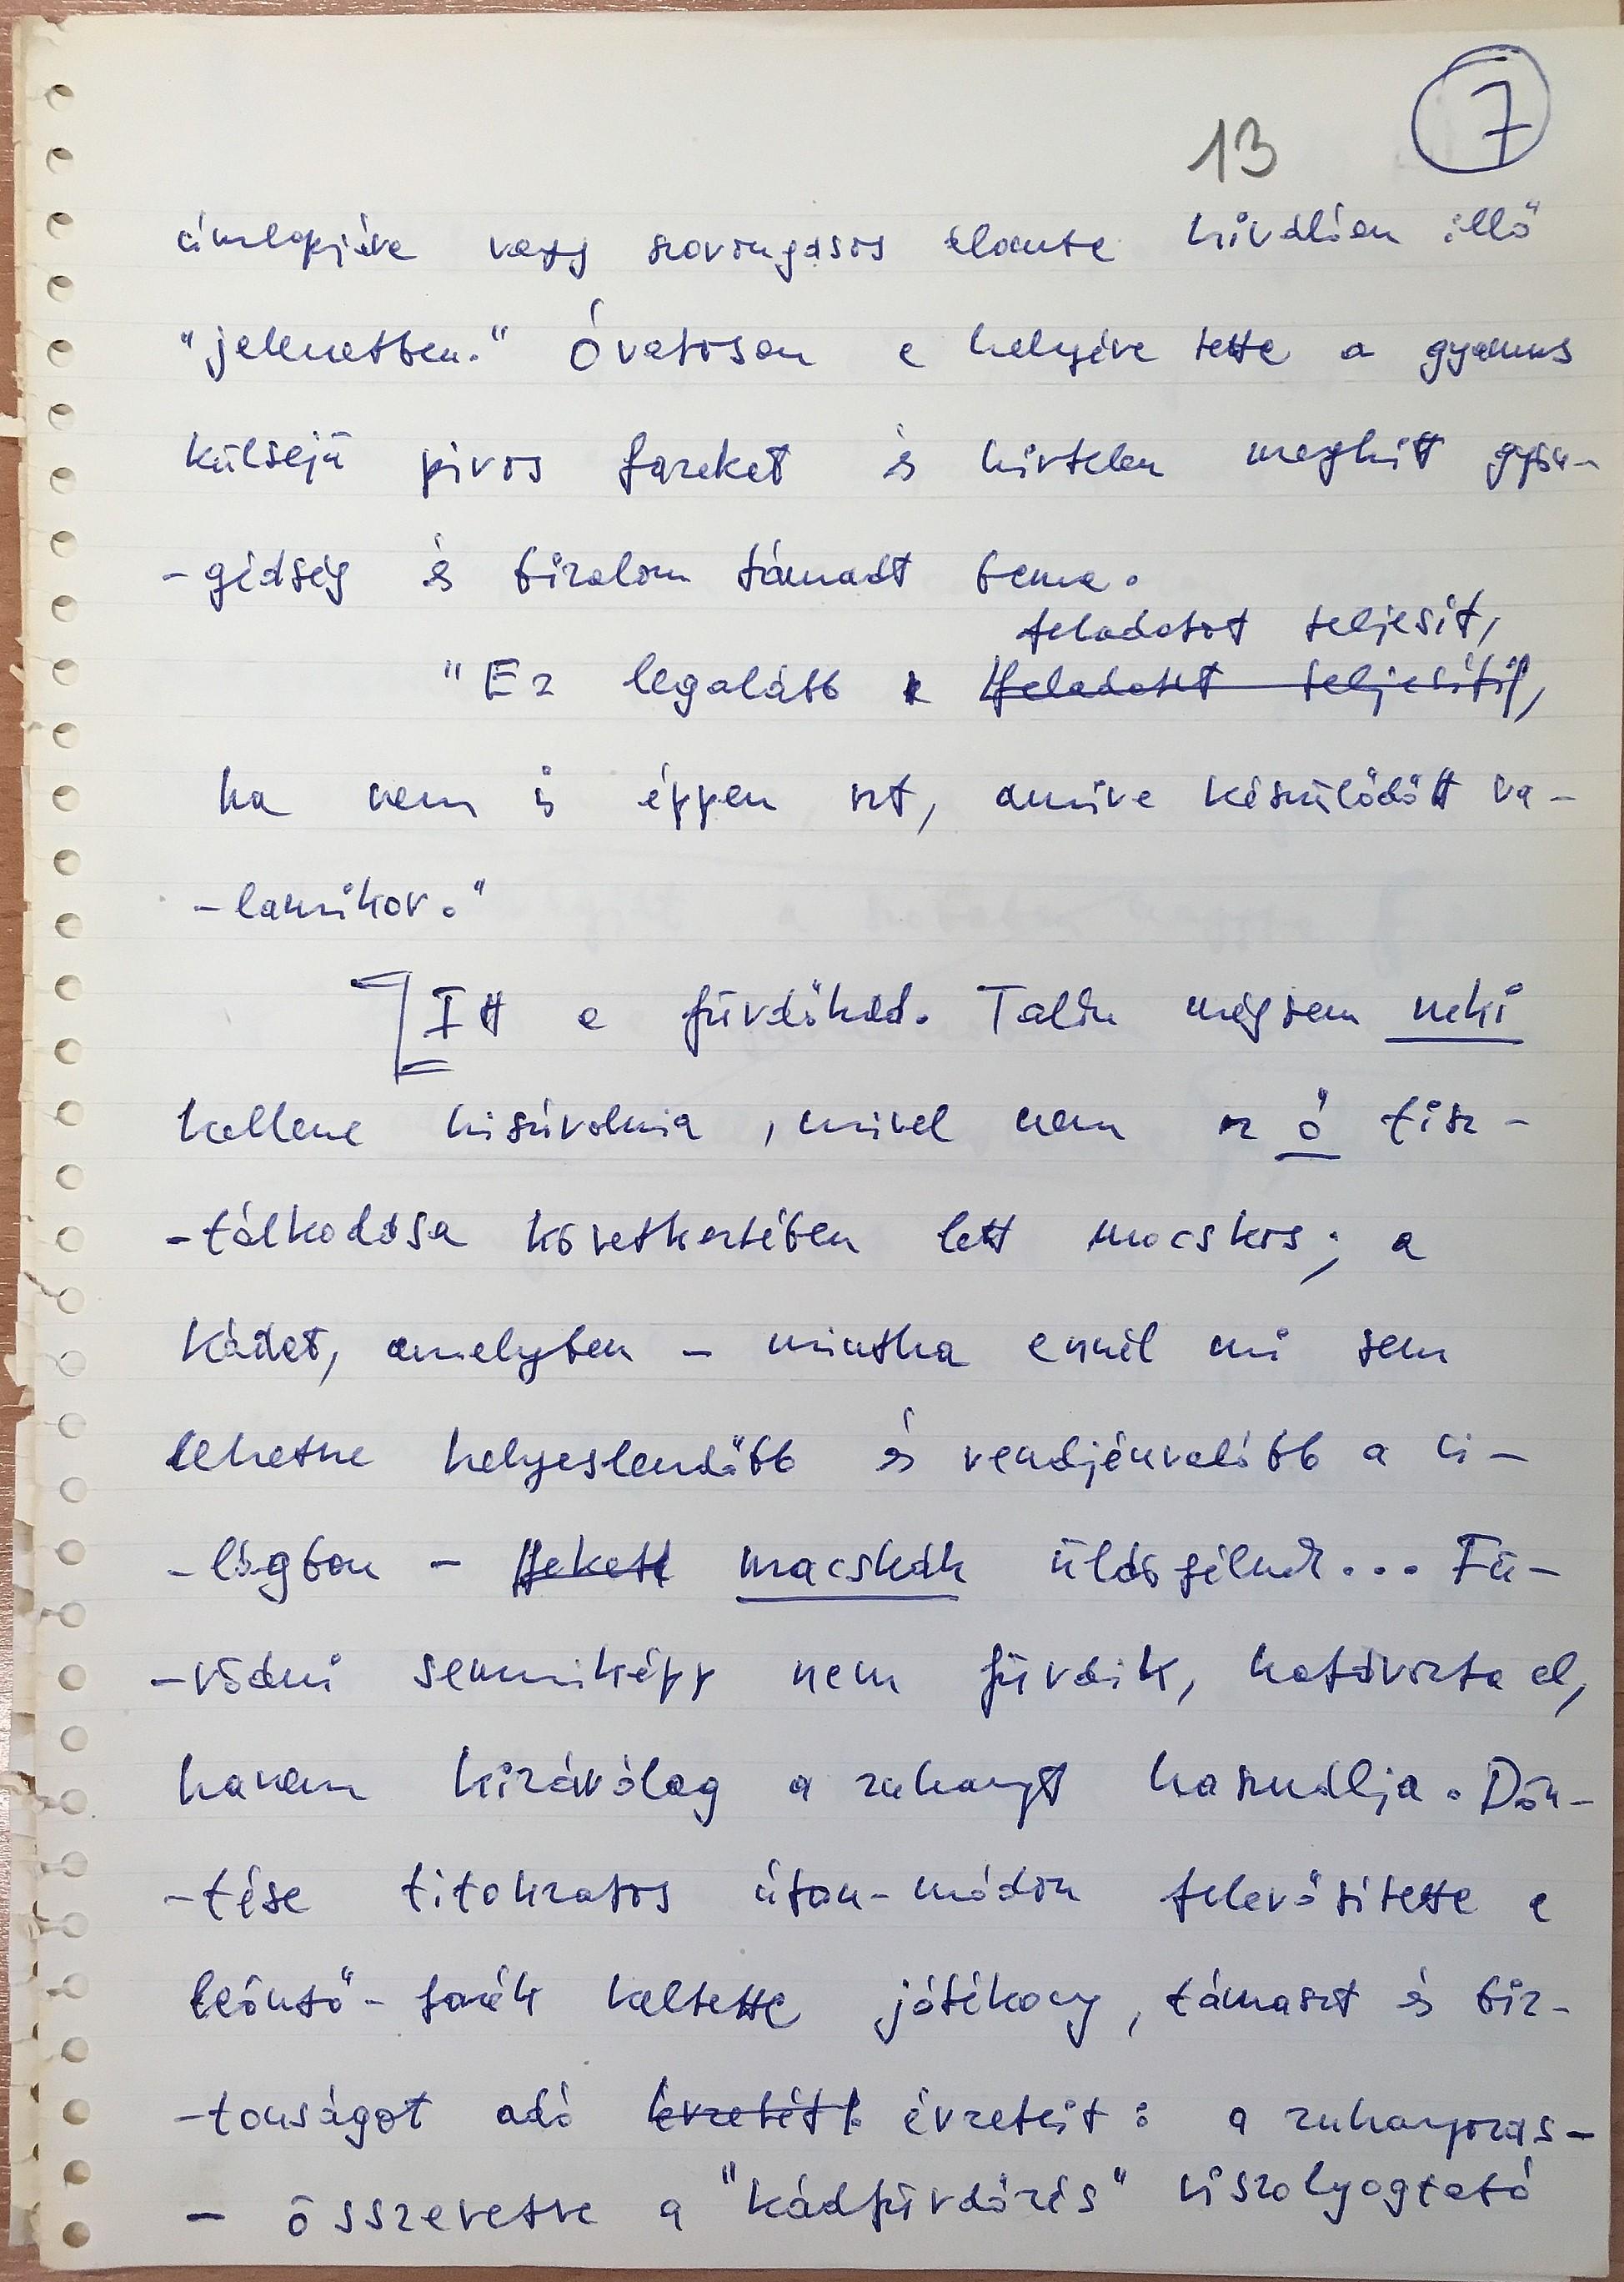 13 7
címlapjára vagy szorongásos álomba kiválóan illő
"jelenetben." Óvatosan a helyére tette a gyanús
külsejű piros fazekat és hirtelen meghitt gyön-
-gédség és bizalom támadt benne.
feladatot teljesít,
"Ez legalább feladatot teljesít,
ha nem is éppen azt, amire készülődött va-
-lamikor."
Itt a fürdőkád. Talán mégsem neki
kellene kisúrolnia, mivel nem az ő tisz-
-tálkodása következtében lett mocskos; a
kádat, amelyben – mintha ennél mi sem
lehetne helyeslendőbb és rendjénvalóbb a vi-
-lágban – fekete macskák üldögélnek... Fü-
-rödni semmiképp nem fürdik, határozta el,
hanem kizárólag a zuhanyt használja. Dön-
-tése titokzatos úton-módon felerősítette a
leöntő-fazék keltette jótékony, támaszt és biz-
-tonságot adó érzetét érzetét: a zuhanyozás-
– összevetve a "kádfürdőzés" viszolyogtató